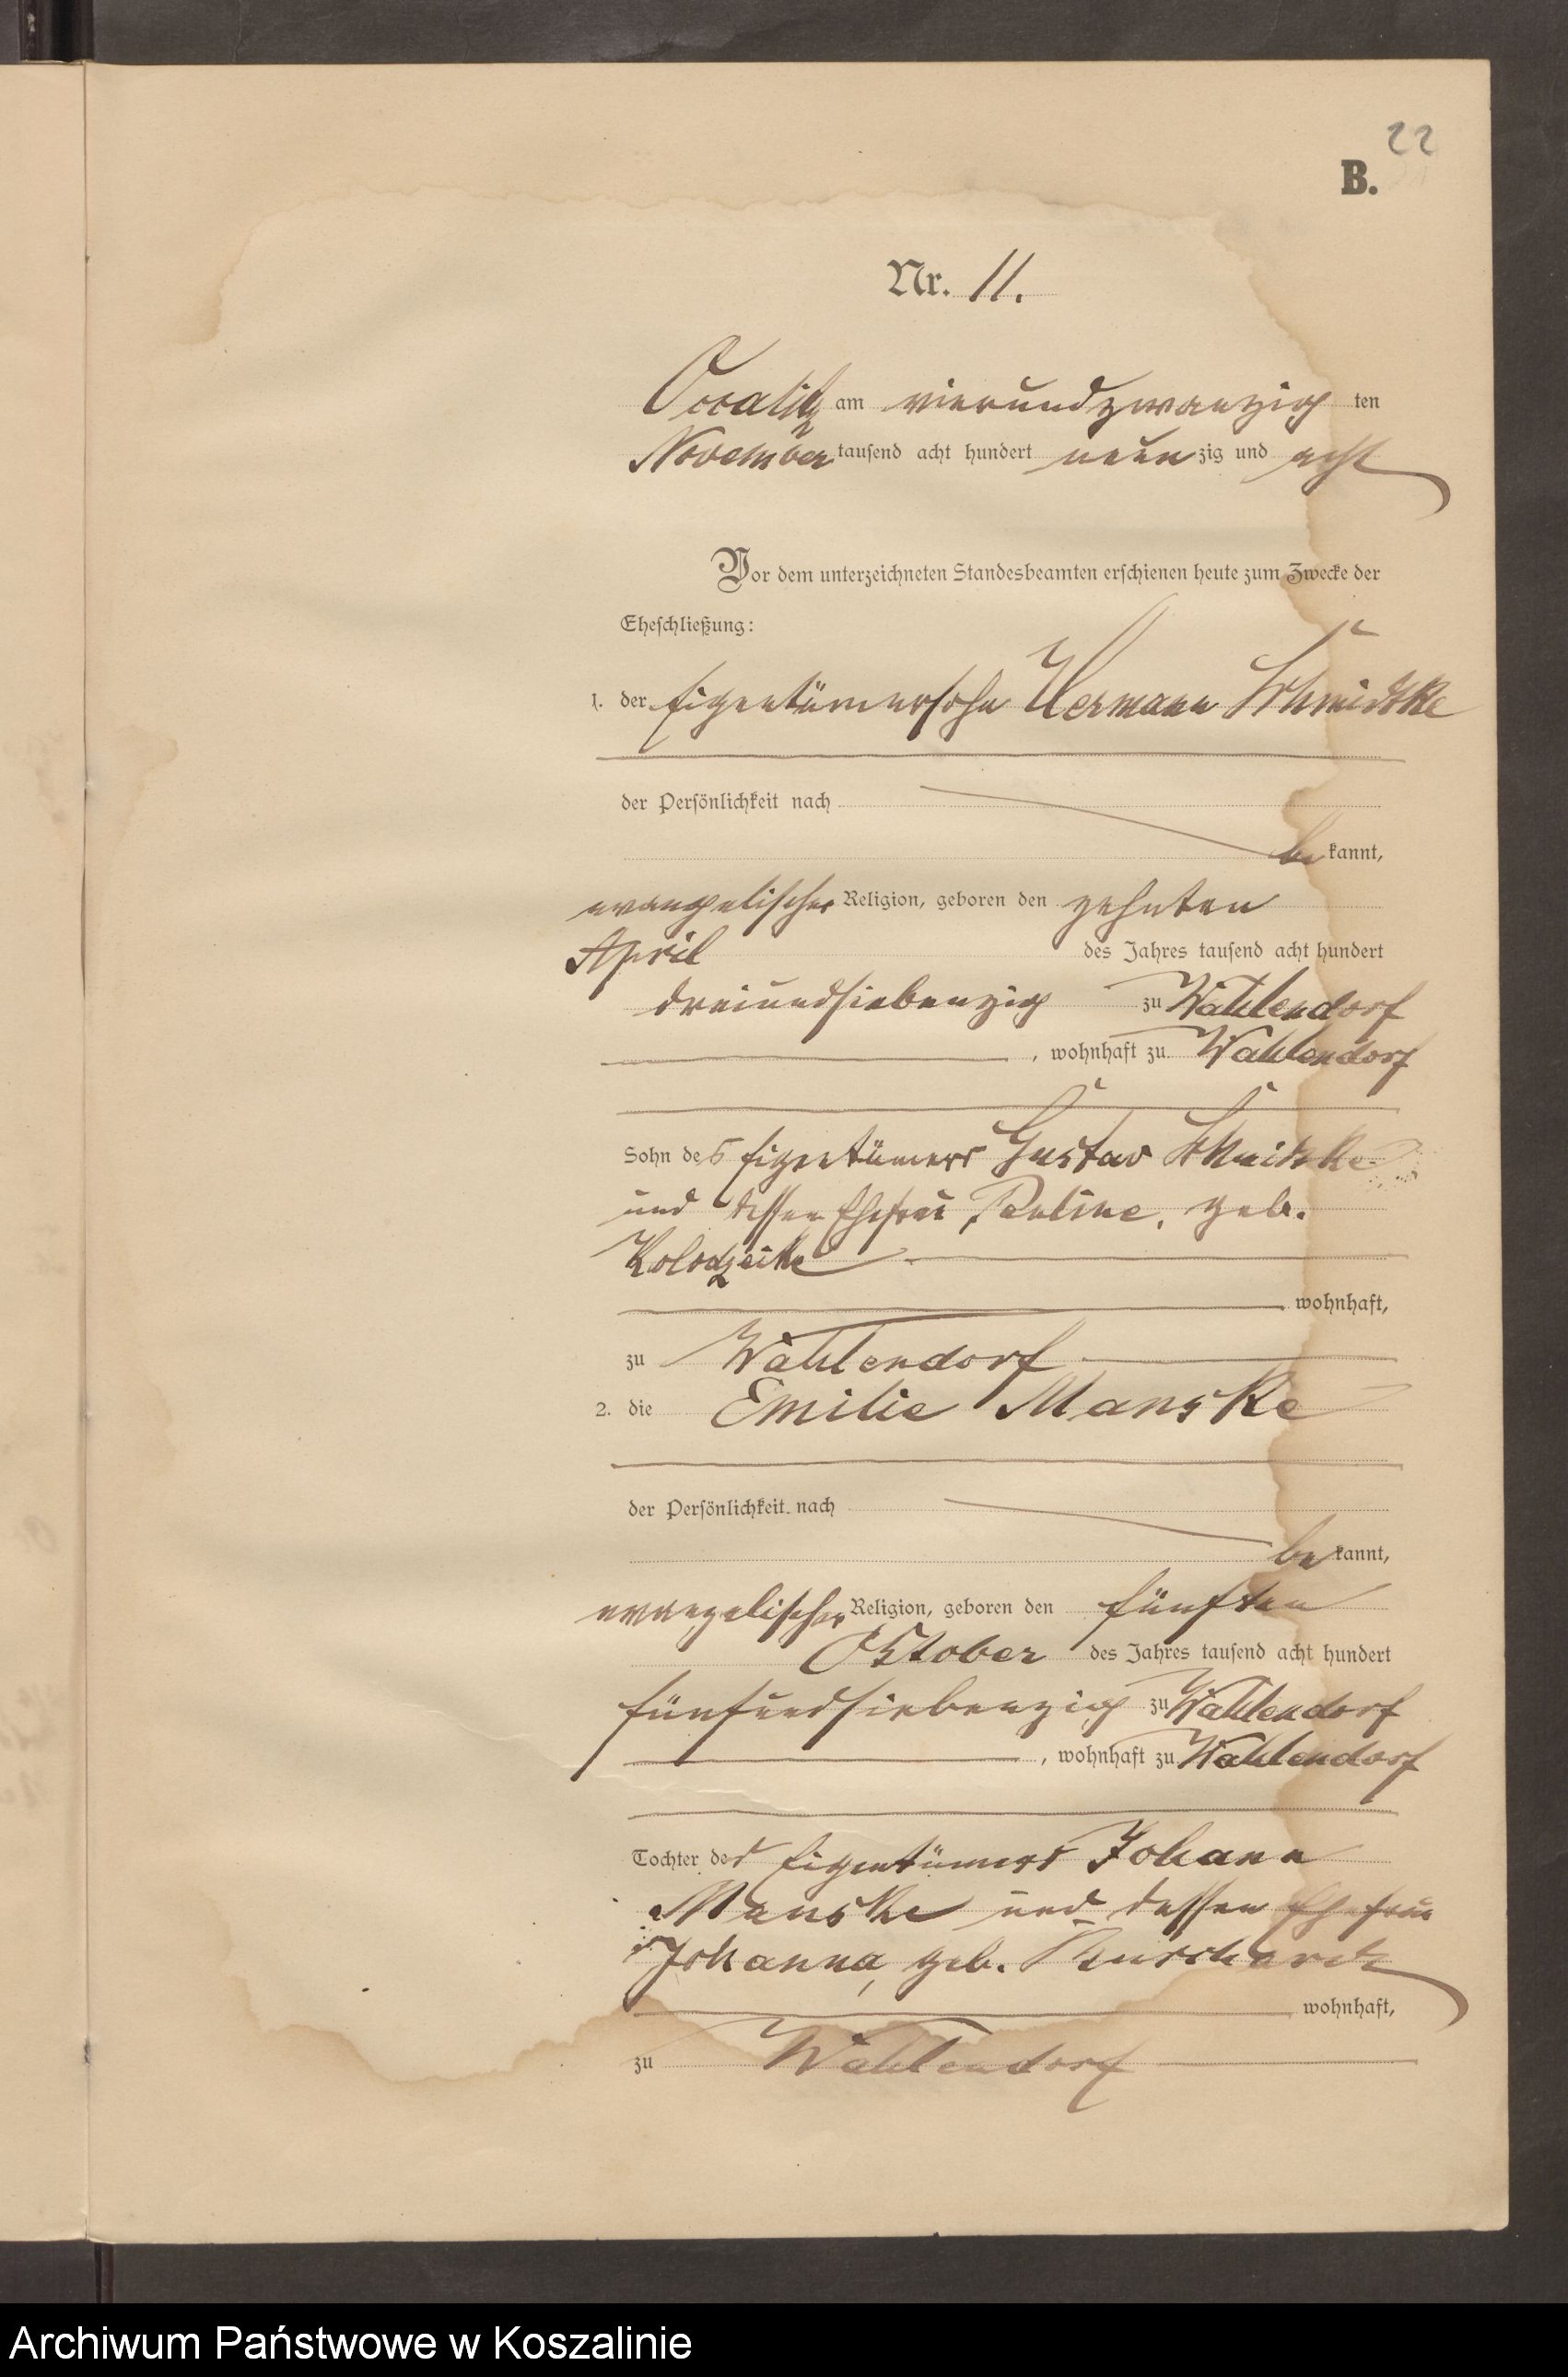 22
B.
Nr. 11.
Occalitz am vierundzwanzig ten
November tausend acht hundert neun zig und acht
Vor dem unterzeichneten Standesbeamten erschienen heute zum Zwecke der
Eheschließung:
1. der Eigentümersohn Hermann Schmidtke
der Persönlichkeit nach
be kannt,
evangelischer Religion, geboren den zehnten
April des Jahres tausend acht hundert
dreiundsiebenzig zu Wahlendorf
, wohnhaft zu Wahlendorf
Sohn des Eigentümers Gustav Schmidtke
und dessen Ehefrau Pauline, geb.
wohnhaft,
zu Wahlendorf
2. die Emilie Manske
der Persönlichkeit nach
be kannt,
evangelischer Religion, geboren den fünften
Oktober des Jahres tausend acht hundert
fünfundsiebenzig zu Wahlendorf
, wohnhaft zu Wahlendorf
Tochter des Eigentümers Johann
Manske und dessen Ehefrau
Johanna, geb.
wohnhaft,
zu Wahlendorf
Archiwum Państwowe w Koszalinie